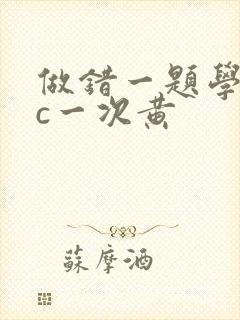 做錯一題學
c一次黃
蘇摩酒